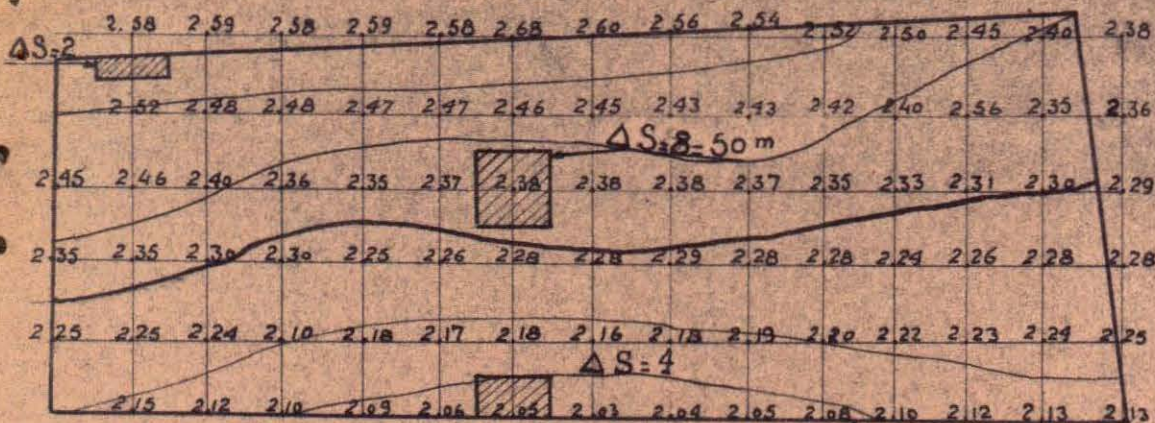 2.58 2.59 2.58 2.59 2.58 2.68 2.60 2.56 2.54 2.52 2.50 2.45 2.40 2.38
ΔS=2
2.52 2.48 2.48 2.47 2.47 2.46 2.45 2.43 2.43 2.42 2.40 2.56 2.35 2.36
ΔS=8=50 m
2.45 2.46 2.40 2.36 2.35 2.37 2.38 2.38 2.38 2.37 2.35 2.33 2.31 2.30 2.29
2.35 2.35 2.30 2.30 2.25 2.26 2.28 2.28 2.29 2.28 2.28 2.24 2.26 2.28 2.28
2.25 2.25 2.24 2.10 2.18 2.17 2.18 2.16 2.18 2.19 2.20 2.22 2.23 2.24 2.25
ΔS=4
2.15 2.12 2.10 2.09 2.06 2.05 2.03 2.04 2.05 2.08 2.10 2.12 2.13 2.13